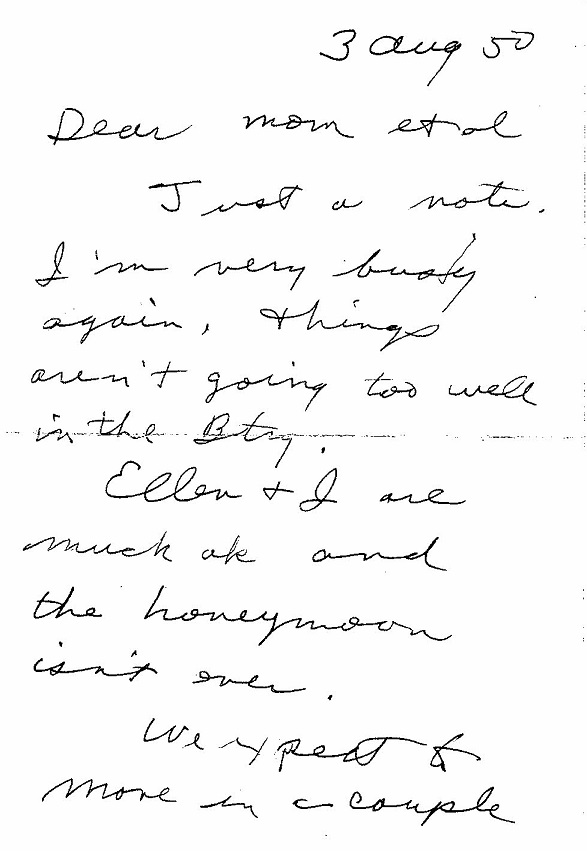 3 Aug 50
Dear mom et al
Just a note.
I'm very busy
again, things
aren't going too well
in the Btry.
Ellen + I are
much ok and
the honeymoon
isn't over.
We expect to
more in a couple